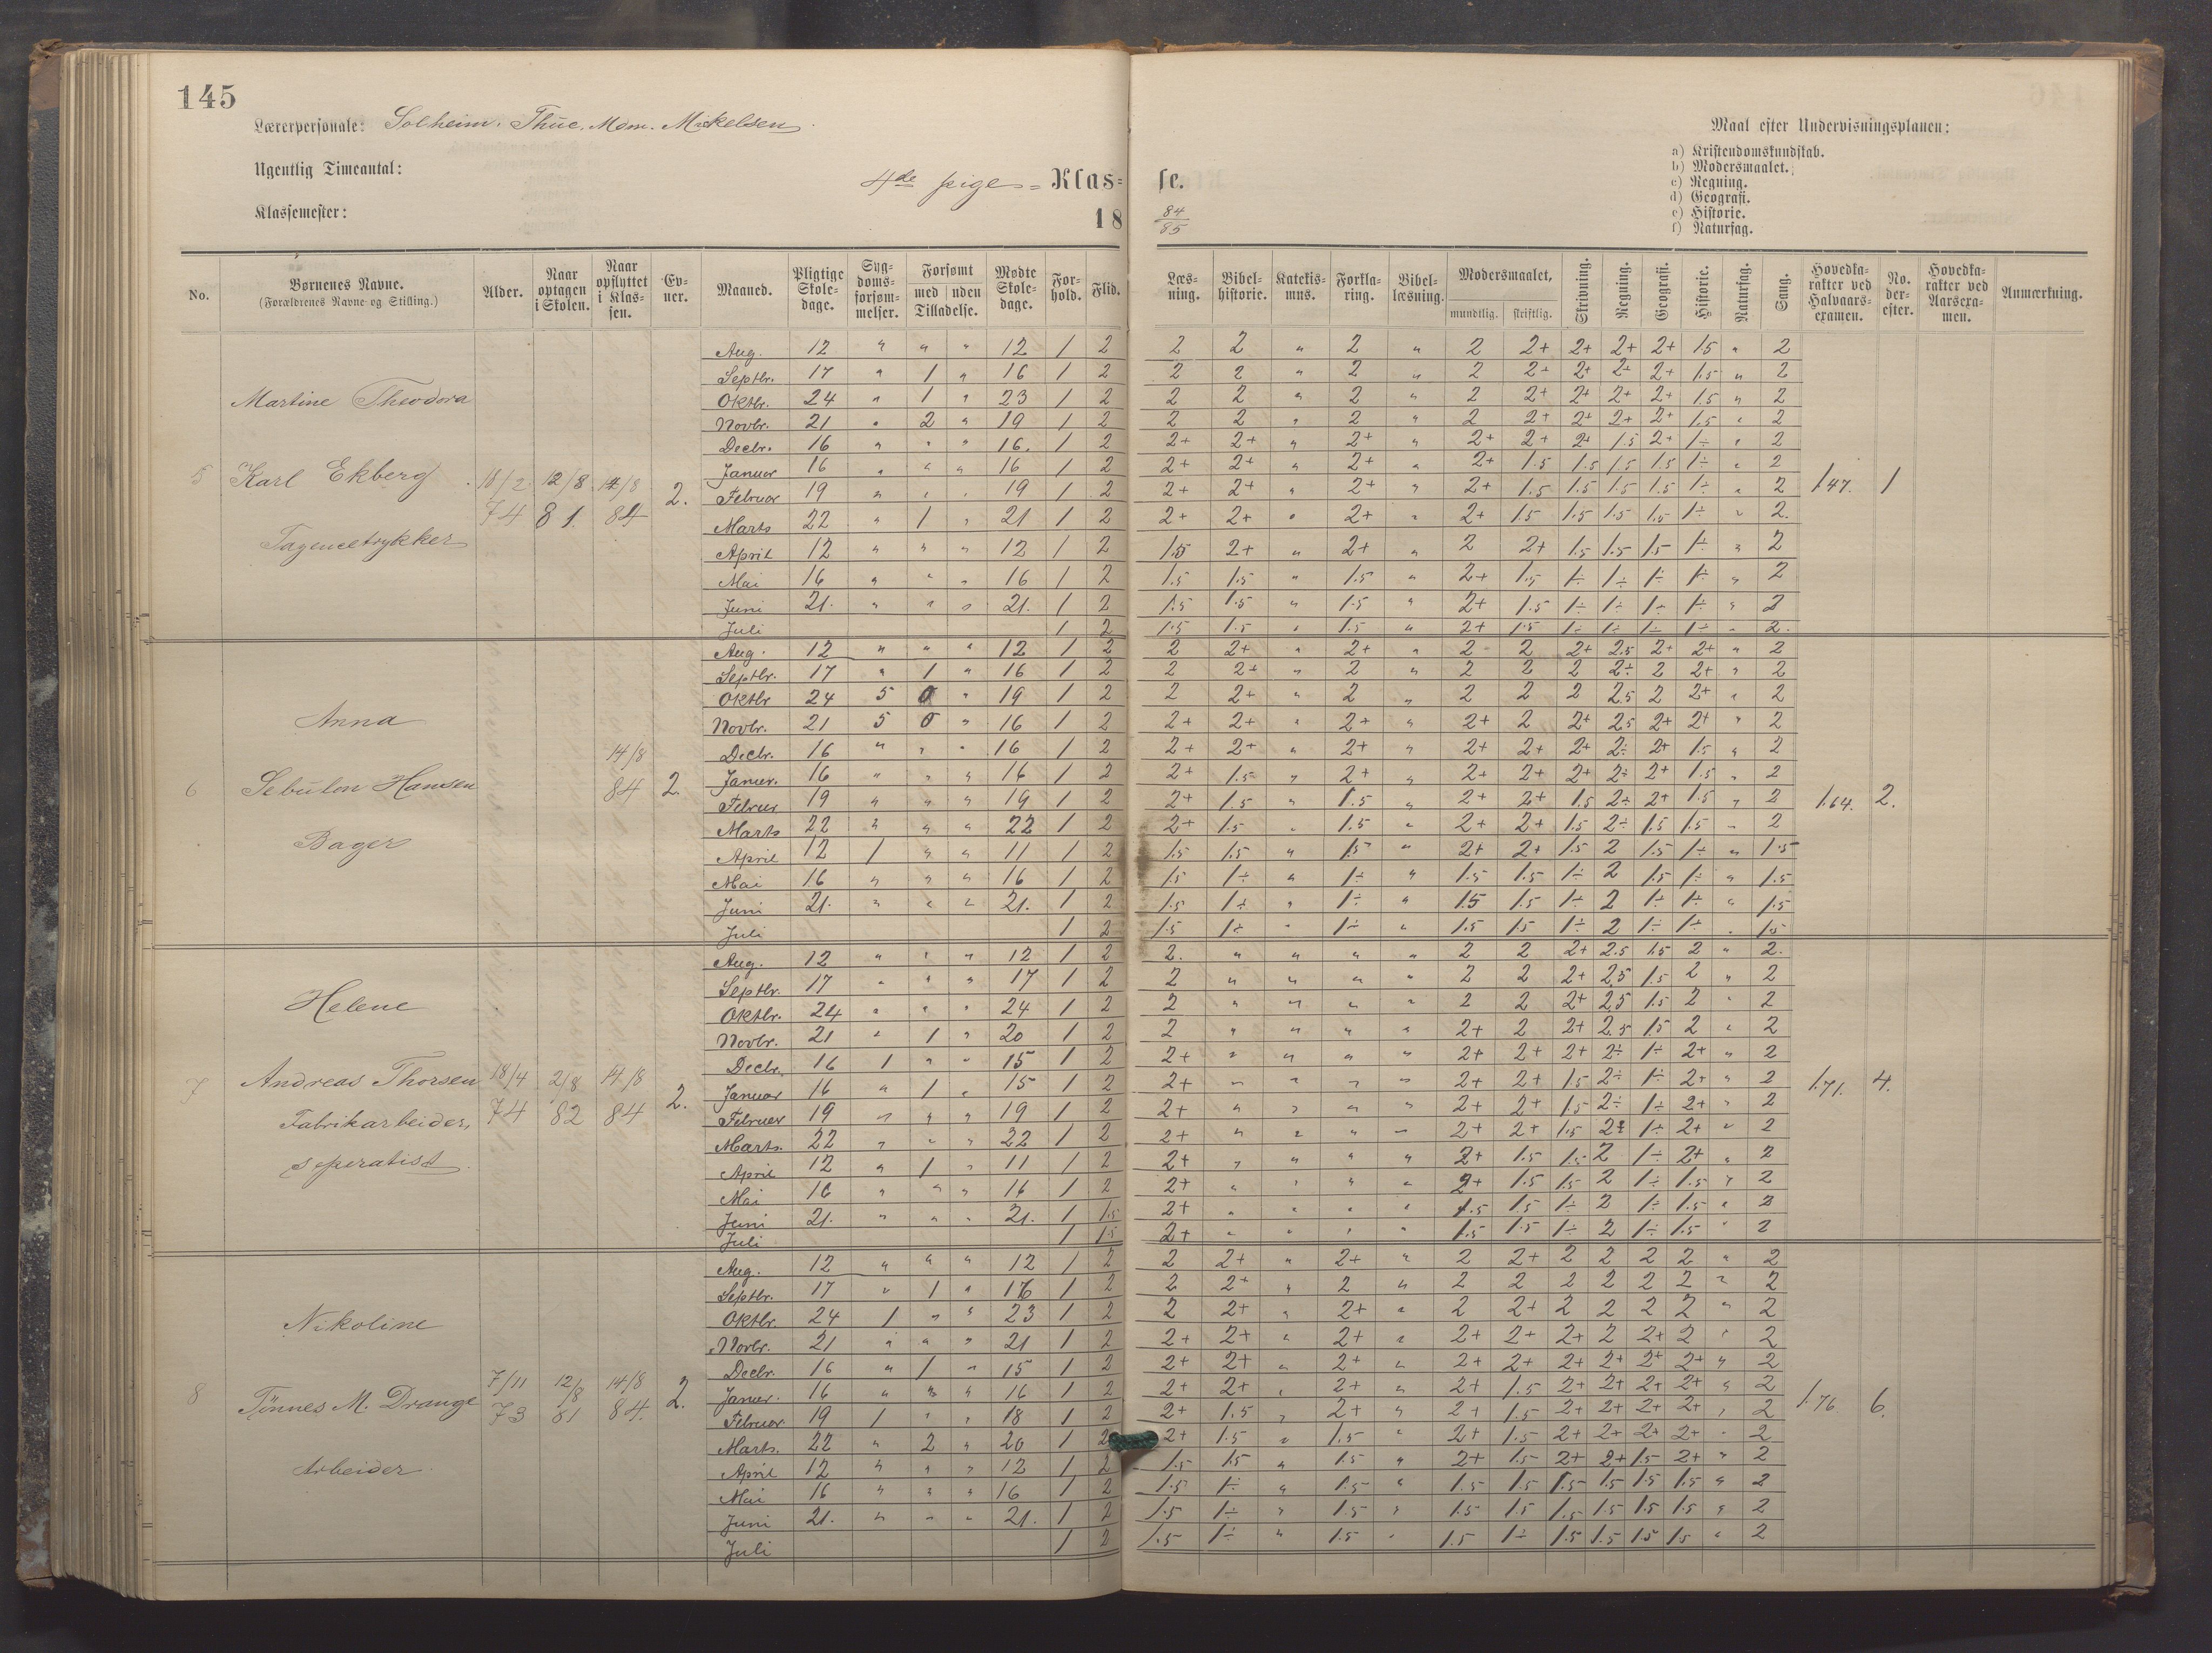 145
Lærerpersonale: Solheim. Thue, Mdm. Mickelsen.
Ugentlig Timeantal:
Klassemester:
4de pige = Klas= se.
18 84/85
Maal efter Undervisningsplanen:
a) Kristendomskundskab.
b) Modersmaalet.
c) Regning.
d) Geografi.
e) Historie.
f) Naturfag.
No. Børnenes Navne. (Forældrenes Navne og Stilling.) Alder. Naar optagen i Skolen. Naar opflyttet i Klassen. Evner. Maaned. Pligtige Skoledage. Sygdomsforsømmelser. Forsømt med uden Tilladelse. Mødte Skoledage. Forhold. Flid. Læsning. Bibelhistorie. Katekismus. Forklaring. Bibellæsning. Modersmaalet, mundtlig. skriftlig. Skrivning. Regning. Geografi. Historie. Naturfag. Sang. Hovedkarakter ved Halvaarsexamen. No. derefter. Hovedkarakter ved Aarsexamen. Anmærkning.
5 Martine Theodora
Karl Ekberg
18/2 74 12/8 81. 14/8 84 2. 1.47. 1
Aug. 12 " " " 12 1 2 2 2 " 2 " 2 2+ 2+ 2+ 2+ 1.5 " 2
Septbr. 17 " 1 " 16 1 2 2 2 " 2 " 2 2+ 2+ 2+ 2+ 1.5 " 2
Oktbr. 24 " 1 " 23 1 2 2 2 " 2 " 2 2+ 2+ 2+ 2+ 1.5 " 2
Novbr. 21 " 2 " 19 1 2 2 2 " 2 " 2 2+ 2+ 2+ 2+ 1.5 " 2
Decbr. 16 " " " 16. 1 2 2+ 2+ " 2+ " 2+ 2+ 2+ 1.5 2+ 1÷ " 2
Januar 16 " " " 16 1 2 2+ 2+ " 2+ " 2+ 1.5 1.5 1.5 1.5 1÷ " 2
Februar 19 " " " 19 1 2 2+ 2+ " 2+ " 2+ 1.5 1.5 1.5 1.5 1÷ " 2
Marts 22 " 1 " 21 1 2 2+ 2+ " 2+ " 2+ 1.5 1.5 1.5 1.5 1÷ " 2.
April 12 " " " 12 1 2 1.5 2+ " 2+ " 2 2+ 1.5 1.5 1.5 1÷ " 2
Mai 16 " " " 16 1 2 1.5 1.5 " 1.5 " 2+ 1.5 1÷ 1÷ 1÷ 1÷ " 2
Juni 21. " " " 21. 1 2 1.5 1.5 " 1.5 " 2+ 1.5 1÷ 1÷ 1÷ 1÷ " 2
Juli 1 2 1.5 1.5 " 1.5 " 2+ 1.5 1÷ 1÷ 1÷ 1÷ " 2.
6 Anna
Sebulon Hansen
Bager
14/8 84 2. 1.64. 2.
Aug. 12 " " " 12 1 2 2 2+ " 2+ " 2 2 2+ 2.5 2+ 2+ " 2
Septbr. 17 " 1 " 16 1 2 2 2+ " 2 " 2 2 2 2÷ 2 2+ " 2
Oktbr 24 5 0 " 19 1 2 2 2+ " 2 " 2 2 2 2.5 2 2+ " 2
Novbr. 21 5 0 " 16 1 2 2+ 2+ " 2+ " 2+ 2 2+ 2.5 2+ 2+ " 2
Decbr. 16 " " " 16 1 2 2+ 2+ " 2+ " 2+ 2+ 2+ 2÷ 2+ 1.5 " 2
Januar. 16 " " " 16 1 2 2+ 1.5 " 2+ " 2+ 2+ 2+ 2÷ 2+ 1.5 " 2
Februar 19 " " " 19 1 2 2+ 1.5 " 1.5 " 2+ 2+ 1.5 2÷ 2+ 1.5 " 2
Marts 22 " " " 22 1 2 2+ 1.5 " 1.5 " 2+ 2+ 1.5 2÷ 1.5 1.5 " 2
April 12 1 " " 11 1 2 1.5 1.5 " 1.5 " 2+ 2+ 1.5 2 1.5 1÷ " 1.5
Mai 16 " " " 16 1 2 1.5 1÷ " 1÷ " 1.5 1.5 1÷ 2 1.5 1÷ " 1.5
Juni 21. " " " 21. 1 2 1.5 1÷ " 1÷ " 1.5 1.5 1÷ 2 1÷ 1÷ " 1.5
Juli 1 2 1.5 1÷ " 1÷ " 1.5 1.5 1÷ 2 1÷ 1÷ " 1.5
7 Helene
Andreas Thorsen
Fabrikarbeider,
seperatist.
18/4 74 2/8 82 14/8 84 2. 1.71. 4.
Aug. 12 " " " 12 1 2 2. " " " " 2 2 2+ 2.5 1.5 2 " 2.
Septbr. 17 " " " 17 1 2 2 " " " " 2 2 2+ 2.5 1.5 2 " 2
Oktbr. 24 " " " 24 1 2 2 " " " " 2 2 2+ 2.5 1.5 2 " 2
Novbr. 21 " 1 " 20 1 2 2 " " " " 2+ 2 2+ 2.5 1.5 2 " 2
Decbr. 16 1 " " 15 1 2 2+ " " " " 2+ 2+ 2+ 2÷ 1÷ 2+ " 2
Januar 16 " 1 " 15 1 2 2+ " " " " 2+ 2+ 1.5 2÷ 1÷ 2+ " 2
Februar 19 " " " 19 1 2 2+ " " " " 2+ 2+ 1.5 2÷ 1÷ 2+ " 2
Marts. 22 " " " 22 1 2 2+ " " " " 2+ 2+ 1.5 2÷ 1÷ 2+ " 2
April 12 " 1 " 11 1 2 2+ " " " " 2+ 1.5 1.5 2 1÷ 2+ " 2
Mai 16 " " " 16 1 2 2+ " " " " 2+ 1.5 1.5 2 1÷ 1.5 " 2
Juni 21. " " " 21. 1 1.5 2+ " " " " 1.5 1.5 1÷ 2 1÷ 1.5 " 2
Juli 1 1.5 2+ " " " " 1.5 1.5 1÷ 2 1÷ 1.5 " 2
8 Nikoline
Tönnes M. Drange
Arbeider.
7/11 73 12/8 81 14/8 84. 2. 1.76 6.
Aug. 12 " " " 12 1 2 2 2+ " 2+ " 2 2+ 2 2 2 2 " 2
Septbr. 17 " 1 " 16 1 2 2 2+ " 2 " 2 2 2 2 2 2 " 2
Oktbr. 24 1 " " 23 1 2 2 2+ " 2+ " 2 2+ 2 2 2 2 " 2
Novbr. 21 " " " 21 1 2 2+ 2+ " 2+ " 2+ 2+ 2+ 2 2+ 2 " 2
Decbr. 16 " 1 " 15 1 2 2+ 2+ " 2+ " 2+ 2+ 2+ 2+ 2+ 2+ " 2
Januar. 16 " " " 16 1 2 2+ 2+ " 2+ " 2+ 1.5 2+ 2+ 2+ 2+ " 2
Februar 19 1 " " 18 1 2 2+ 1.5 " 2+ " 2+ 1.5 2+ 2+ 2+ 2+ " 2
Marts. 22 " 2 " 20 1 2 2+ 1.5 " 1.5 " 2+ 1.5 2+ 2+ 2+ 2+ " 2
April 12 " " " 12 1 2 1.5 1.5 " 1.5 " 2+ 1.5 2+ 2+ 1.5 2+ " 2
Mai 16 " " " 16 1 2 1.5 1÷ " 1.5 " 1.5 1.5 1.5 1.5 1.5 1.5 " 2
Juni 21. " " " 21. 1 2 1.5 1÷ " 1.5 " 1.5 1.5 1.5 1.5 1.5 1.5 " 2
Juli 1 2 1.5 1÷ " 1.5 " 1.5 1÷ 1.5 1.5 1.5 1.5 " 2